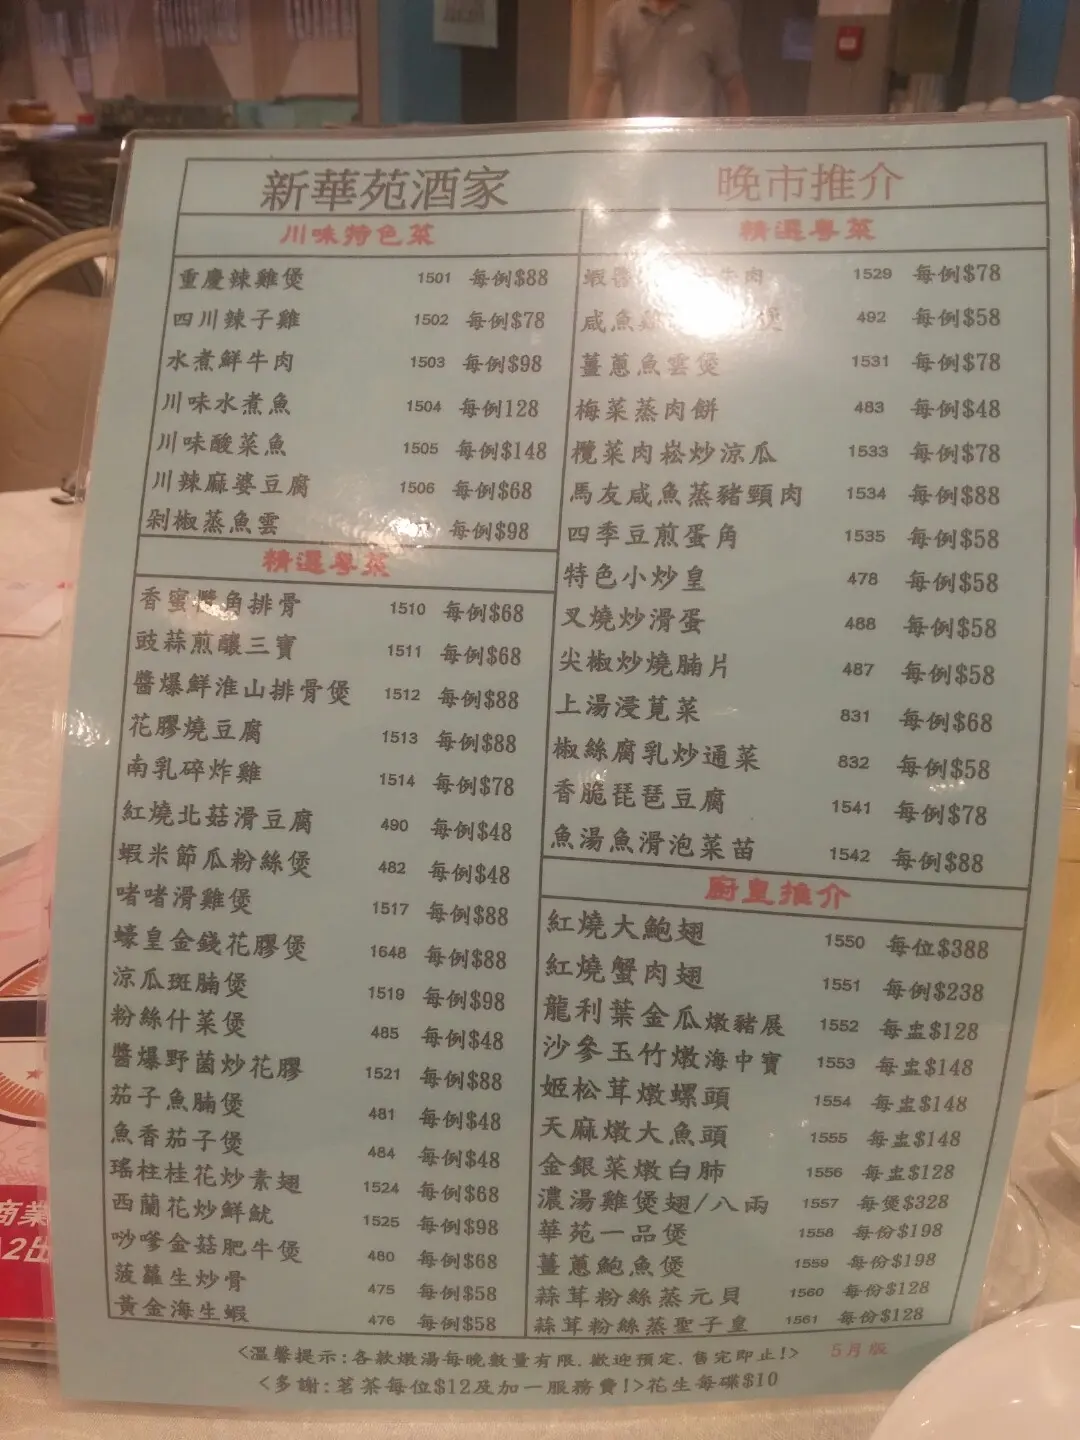 新華苑酒家
晚市推介
川味特色菜
重慶辣雞煲 1501 每例$88
四川辣子雞 1502 每例$78
水煮鮮牛肉 1503 每例$98
川味水煮魚 1504 每例128
川味酸菜魚 1505 每例$148
川辣麻婆豆腐 1506 每例$68
剁椒蒸魚雲 每例$98
精選粵菜
香蜜 角排骨 1510 每例$68
豉蒜煎釀三寶 1511 每例$68
醬爆鮮淮山排骨煲 1512 每例$88
花膠燒豆腐 1513 每例$88
南乳碎炸雞 1514 每例$78
紅燒北菇滑豆腐 490 每例$48
蝦米節瓜粉絲煲 482 每例$48
啫啫滑雞煲 1517 每例$88
蠔皇金錢花膠煲 1648 每例$88
涼瓜斑腩煲 1519 每例$98
粉絲什菜煲 485 每例$48
醬爆野菌炒花膠 1521 每例$88
茄子魚腩煲 481 每例$48
魚香茄子煲 484 每例$48
瑤柱桂花炒素翅 1524 每例$68
西蘭花炒鮮魷 1525 每例$98
吵嗲金菇肥牛煲 480 每例$68
菠蘿生炒骨 475 每例$58
黃金海生蝦 476 每例$58
精選粵菜
蝦醬 牛肉 1529 每例$78
咸魚雞 煲 492 每例$58
薑蔥魚雲煲 1531 每例$78
梅菜蒸肉餅 483 每例$48
欖菜肉崧炒涼瓜 1533 每例$78
馬友咸魚蒸豬頸肉 1534 每例$88
四季豆煎蛋角 1535 每例$58
特色小炒皇 478 每例$58
叉燒炒滑蛋 488 每例$58
尖椒炒燒腩片 487 每例$58
上湯浸莧菜 831 每例$68
椒絲腐乳炒通菜 832 每例$58
香脆琵琶豆腐 1541 每例$78
魚湯魚滑泡菜苗 1542 每例$88
廚皇推介
紅燒大鮑翅 1550 每位$388
紅燒蟹肉翅 1551 每例$238
龍利葉金瓜燉豬展 1552 每盅$128
沙參玉竹燉海中寶 1553 每盅$148
姬松茸燉螺頭 1554 每盅$148
天麻燉大魚頭 1555 每盅$148
金銀菜燉白肺 1556 每盅$128
濃湯雞煲翅/八兩 1557 每煲$328
華苑一品煲 1558 每份$198
薑蔥鮑魚煲 1559 每份$198
蒜茸粉絲蒸元貝 1560 每份$128
蒜茸粉絲蒸聖子皇 1561 每份$128
<溫馨提示:各款燉湯每晚數量有限.歡迎預定.售完即止!> 5月版
<多謝:茗茶每位$12及加一服務費!>花生每碟$10
商業
A2出